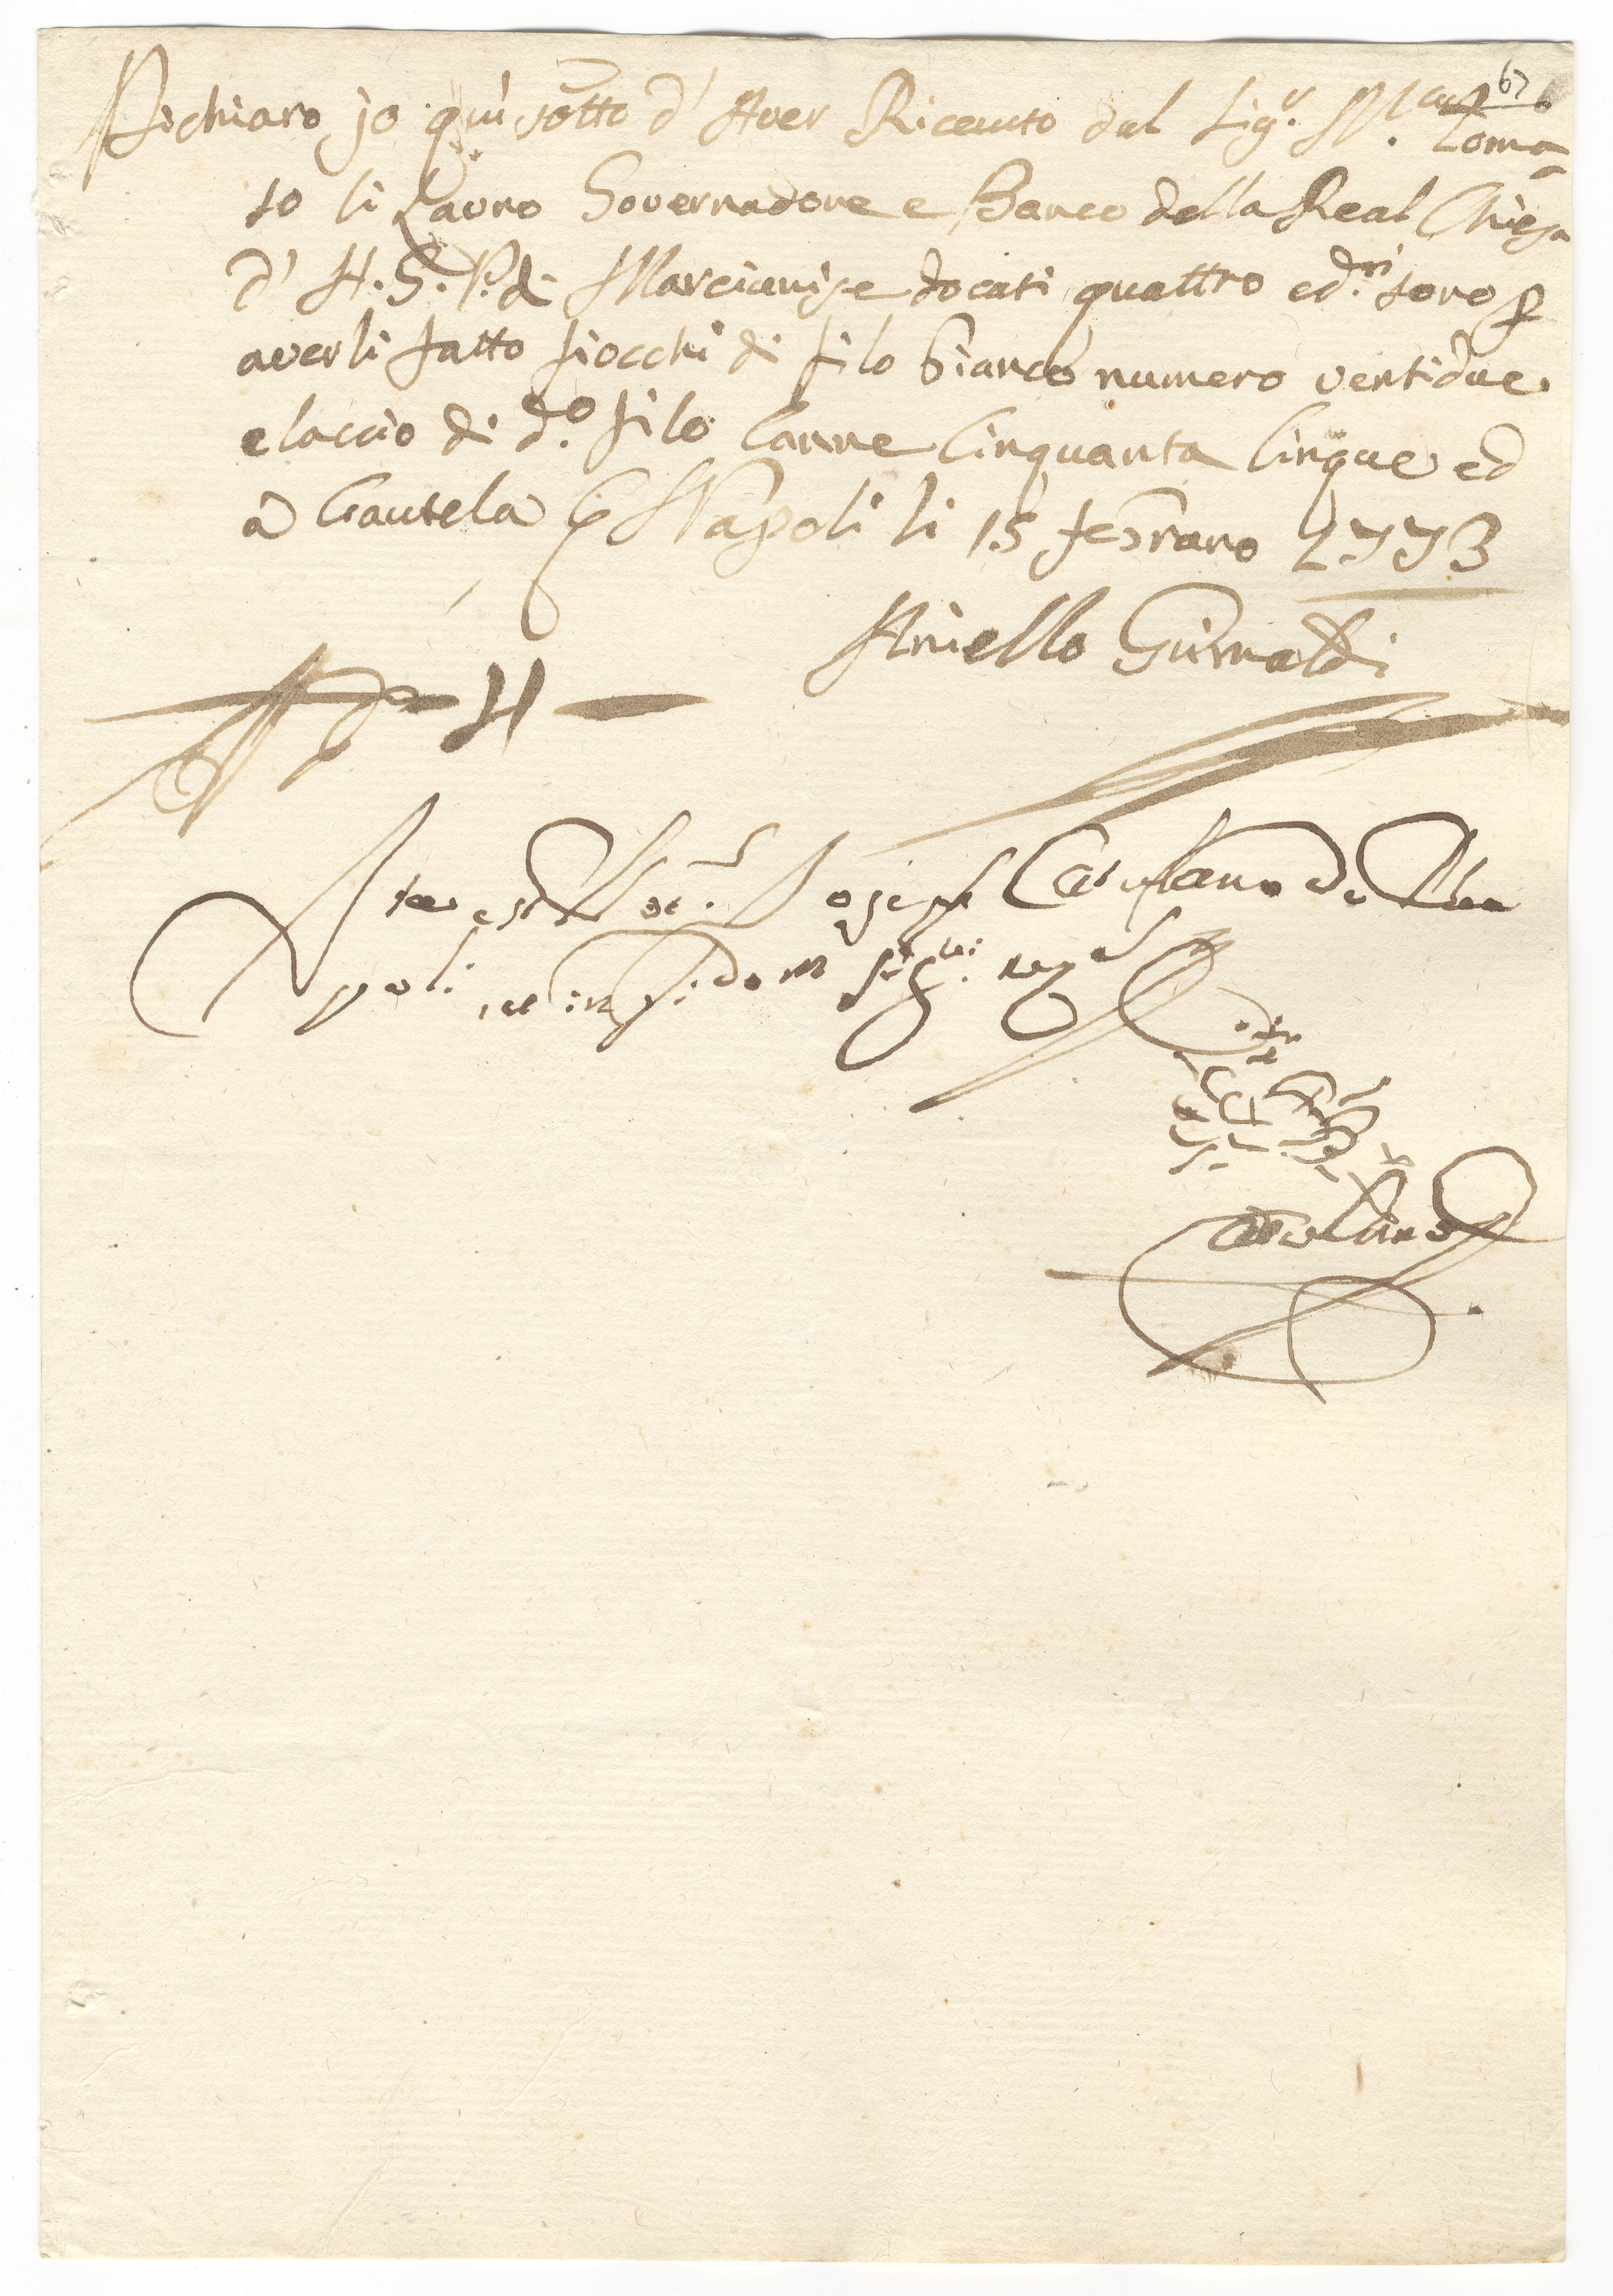 67
Dichiaro jo quì sotto d' Aver Riceuuto dal Sig.r M.co Toma
so li Lauro Governadore e Banco della Real Chiesa
d' A. G. P. di Marcianise docati quattro e d.ri sono p
averli fatto fiocchi di filo bianco numero ventidue
e laccio di d.o filo Canne Cinquanta Cinque ed
à Cautela &c Napoli li 15 febraro 1773
Aniello Grimaldi
D. 4
Ita est Not.r Joseph Catalano de Nea
poli et in fidem sig.vi rog.s